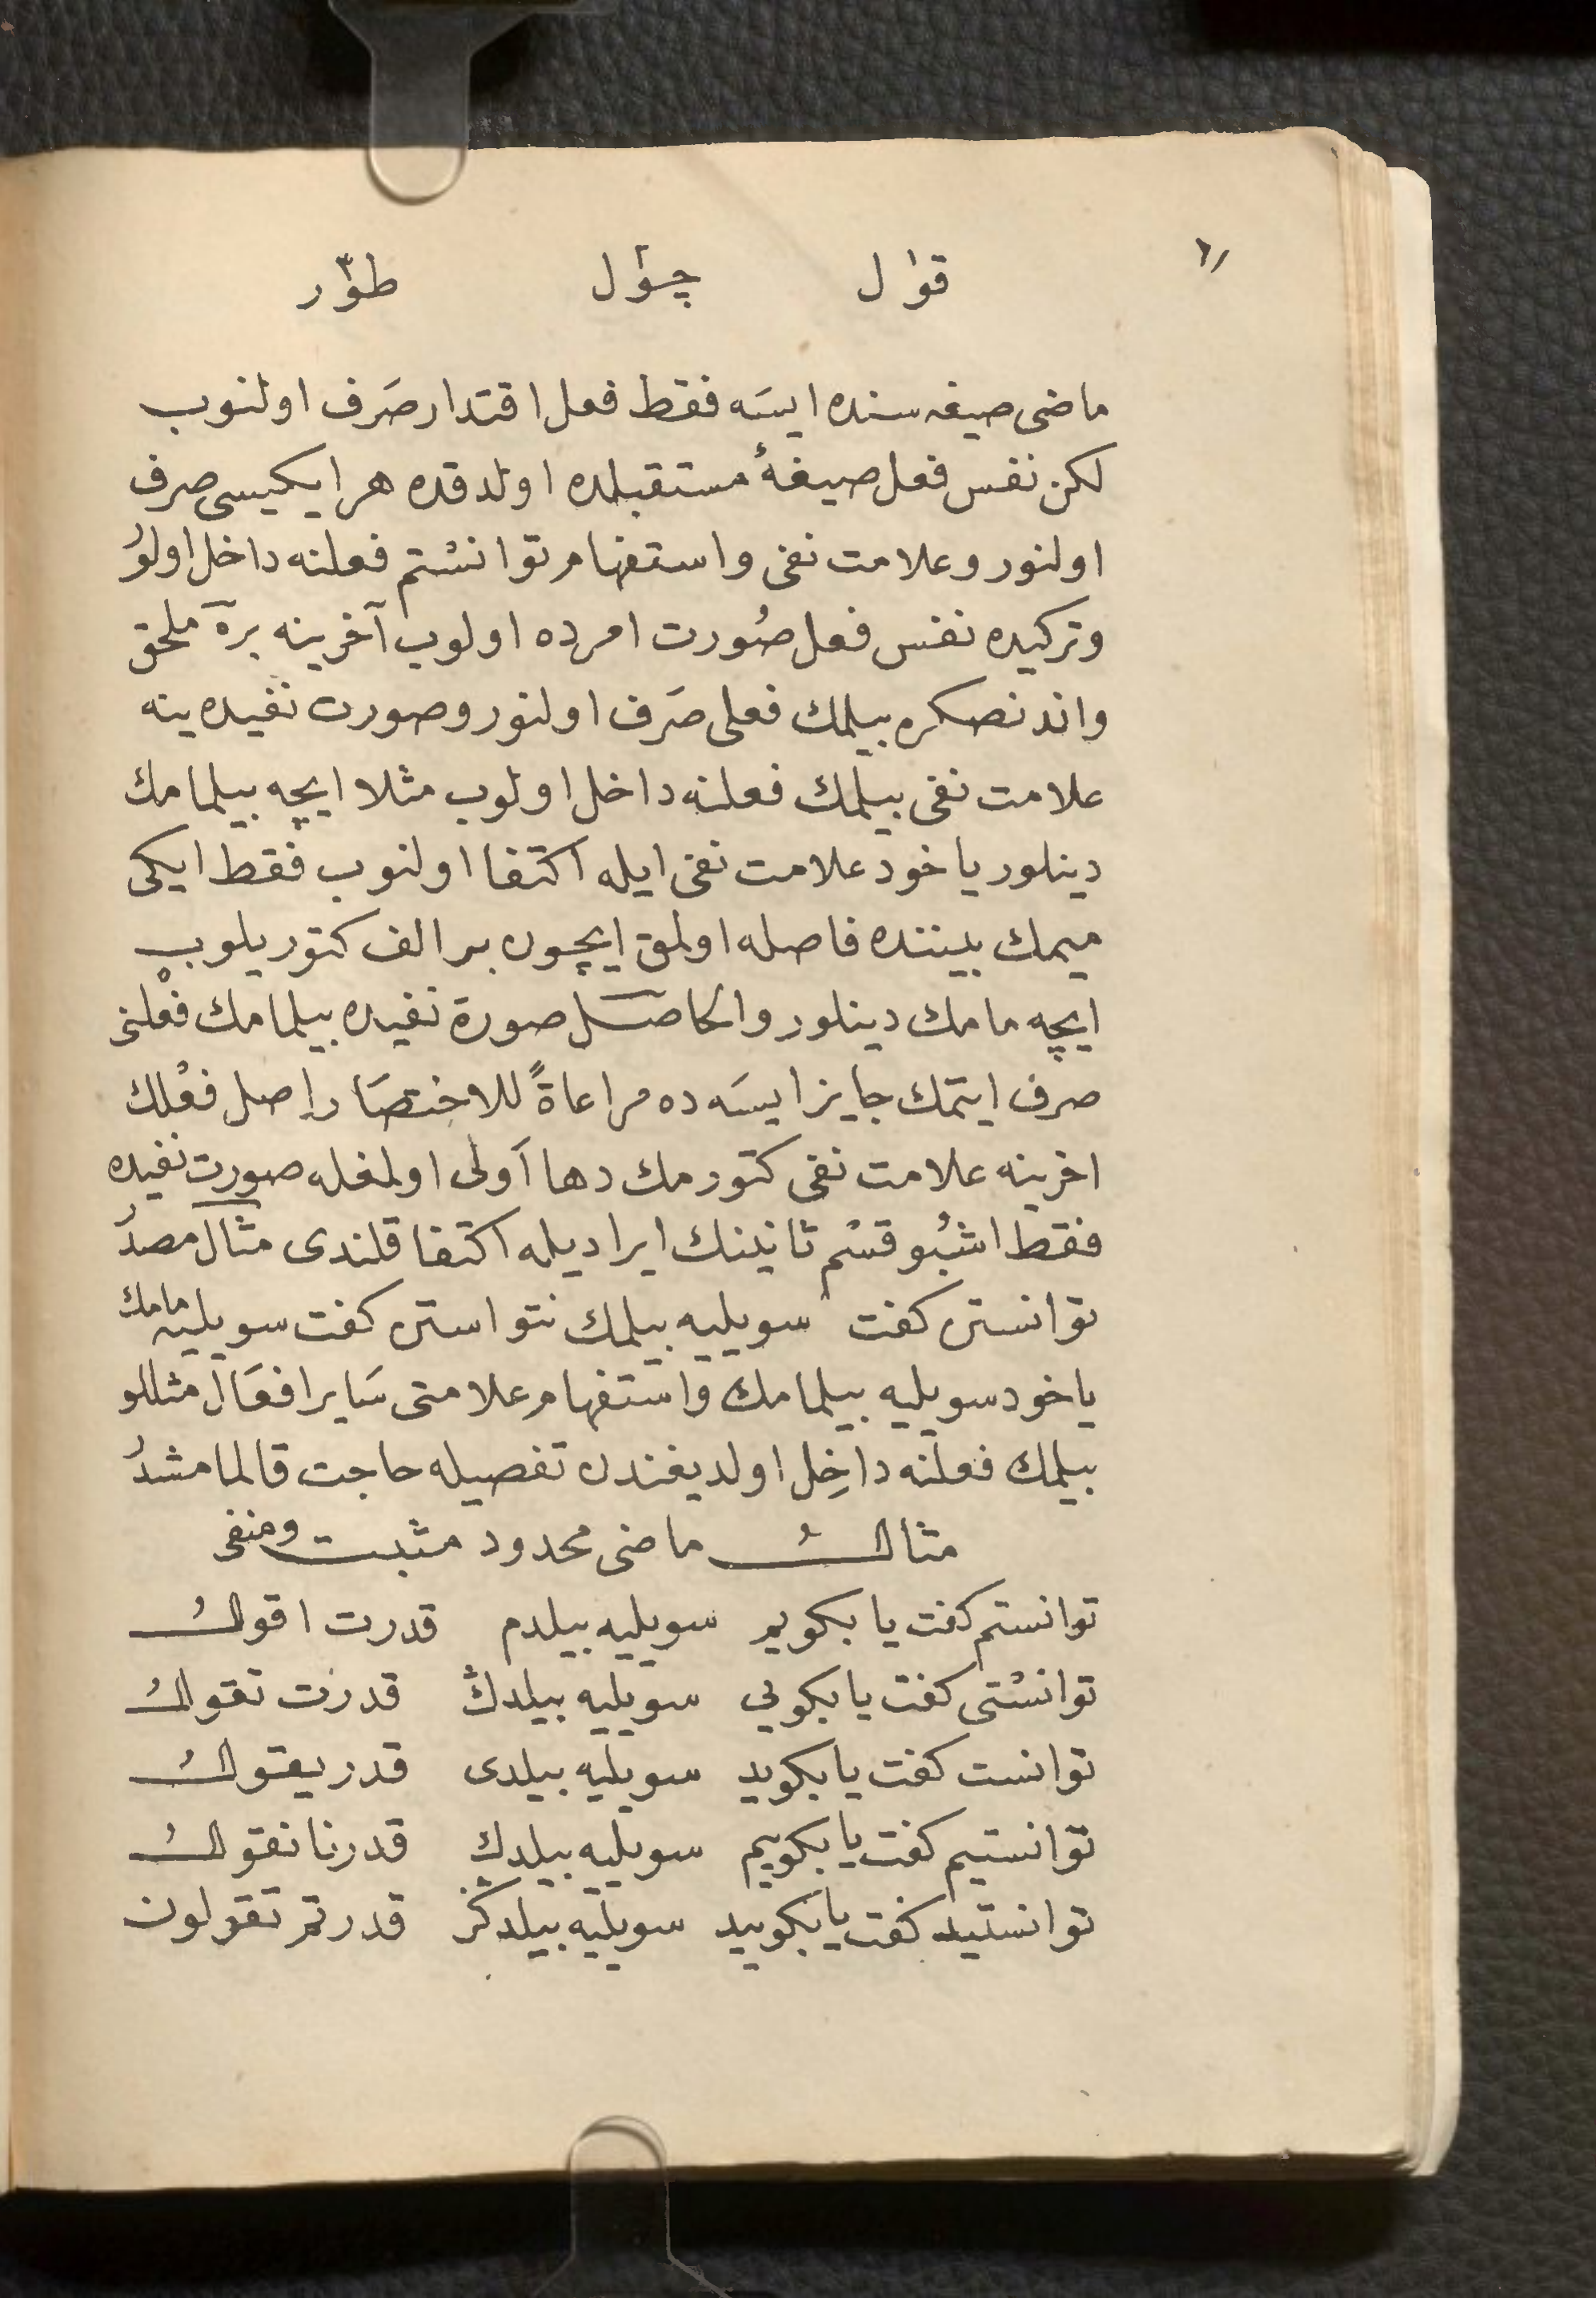 قوٰل چوٴل طوّر
ماضی صیغه سنده ایسَه فقط فعل اقتدار صَرف اولنوب
لكن نفس فعل صیغهٔ مستقبلده اولدقده هر ایكیسی صرف
اولنور وعلامت نفی واستفهام توانسْتم فعلنه داخل اولوُر
وتركیده نفس فعل صُورت امرده اولوب آخرینه بر ه ملحق
واندنصكره بیلمك فعلی صَرف اولنور وصورت نفیده ینه
علامت نفی بیلمك فعلنه داخل اولوب مثلا ایچه بیلمامك
دینلور یاخود علامت نفی ایله اكتفا اولنوب فقط ایكی
میمك بیننده فاصله اولمق ایچون بر الف كتوریلوب
ایچه مامك دینلور والحاصل صورة نفیده بیلمامك فعْلنی
صرف ایتمك جایز ایسَه ده مراعاةً للاختصَار اصل فعْلك
اخرینه علامت نفی كتورمك دها اَولی اولمغله صورت نفیده
فقط اشبُو قسْم ثانینك ایرادیله اكتفا قلندی مثال مصدرُ
توانستن كفت سویلیه بیلمك نتواستن كفت سویلیه مامك
یاخود سویلیه بیلمامك واستفهام علامتی سَایر افعَال مثللو
بیلمك فعلنه داخِل اولدیغندن تفصیله حاجت قالمامشدرُ
مثالُ ماضی محدود مثبت ومنفی
توانستم كفت یا بكویم سویلیه بیلدم قدرت اقولُ
توانسْتی كفت یا بكویی سویلیه بیلدڭ قدرت تقولُ
توانست كفت یا بكوید سویلیه بیلدی قدر یقولُ
توانستیم كفت یا بكوییم سویلیه بیلدك قدرنا نقولُ
توانستید كفت یا بكویید سویلیه بیلدكز قدرتم تقولون